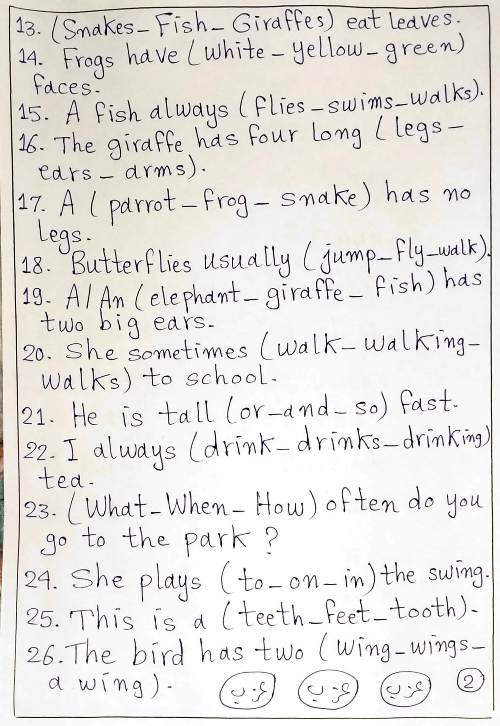 13. (Snakes_ Fish_ Giraffes) eat leaves.
14. Frogs have (white _ yellow _ green)
faces.
15. A fish always (flies _ swims _ walks).
16. The giraffe has four long (legs _
ears _ arms).
17. A (parrot _ frog _ snake) has no
legs.
18. Butterflies usually (jump _ fly _ walk).
19. A/An (elephant _ giraffe _ fish) has
two big ears.
20. She sometimes (walk _ walking _
walks) to school.
21. He is tall (or _ and _ so) fast.
22. I always (drink _ drinks _ drinking)
tea.
23. (What _ When _ How) often do you
go to the park ?
24. She plays (to _ on _ in) the swing.
25. This is a (teeth _ feet _ tooth).
26. The bird has two (wing _ wings _
a wing).
2